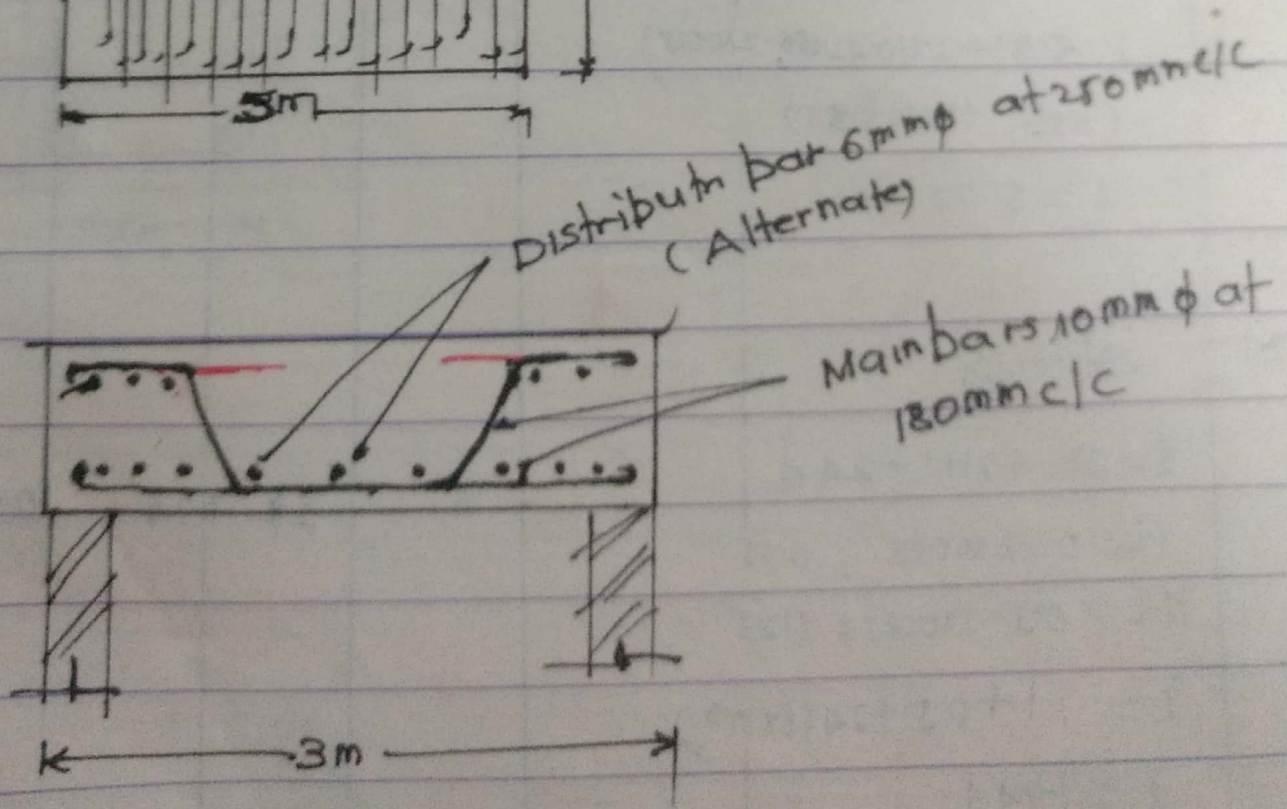 5m
Distributn bar 6mmϕ at 250mm c/c
(Alternate)
Main bars 10mm ϕ at
180mm c/c
3m